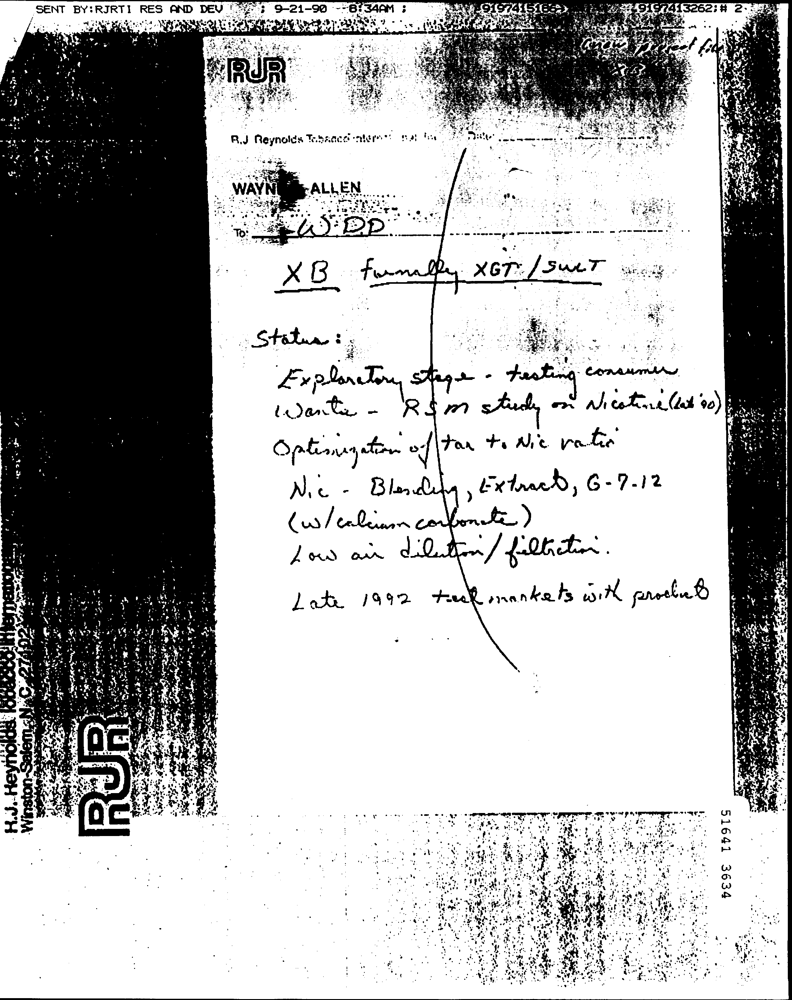 SENT BY:RJRTI RES AND DEV ; 9-21-90 6:34AM ; ;9197413262;# 2
project file
RJR
R.J Reynolds Tobacco Date:
WAYN ALLEN
To: W.DD
XB formally XGT / SWLT
Status:
Exploratory stage - testing consumer
Wants - RSM study on Nicotine (late '90)
Optimization of tar to Nic ratio
Nic - Blending, Extract, G-7-12
(w/calcium carbonate)
Low air dilution/filtration.
Late 1992 test markets with product
R.J. Reynolds Tobacco International
Winston-Salem, N.C. 27102
RJR
51641 3634